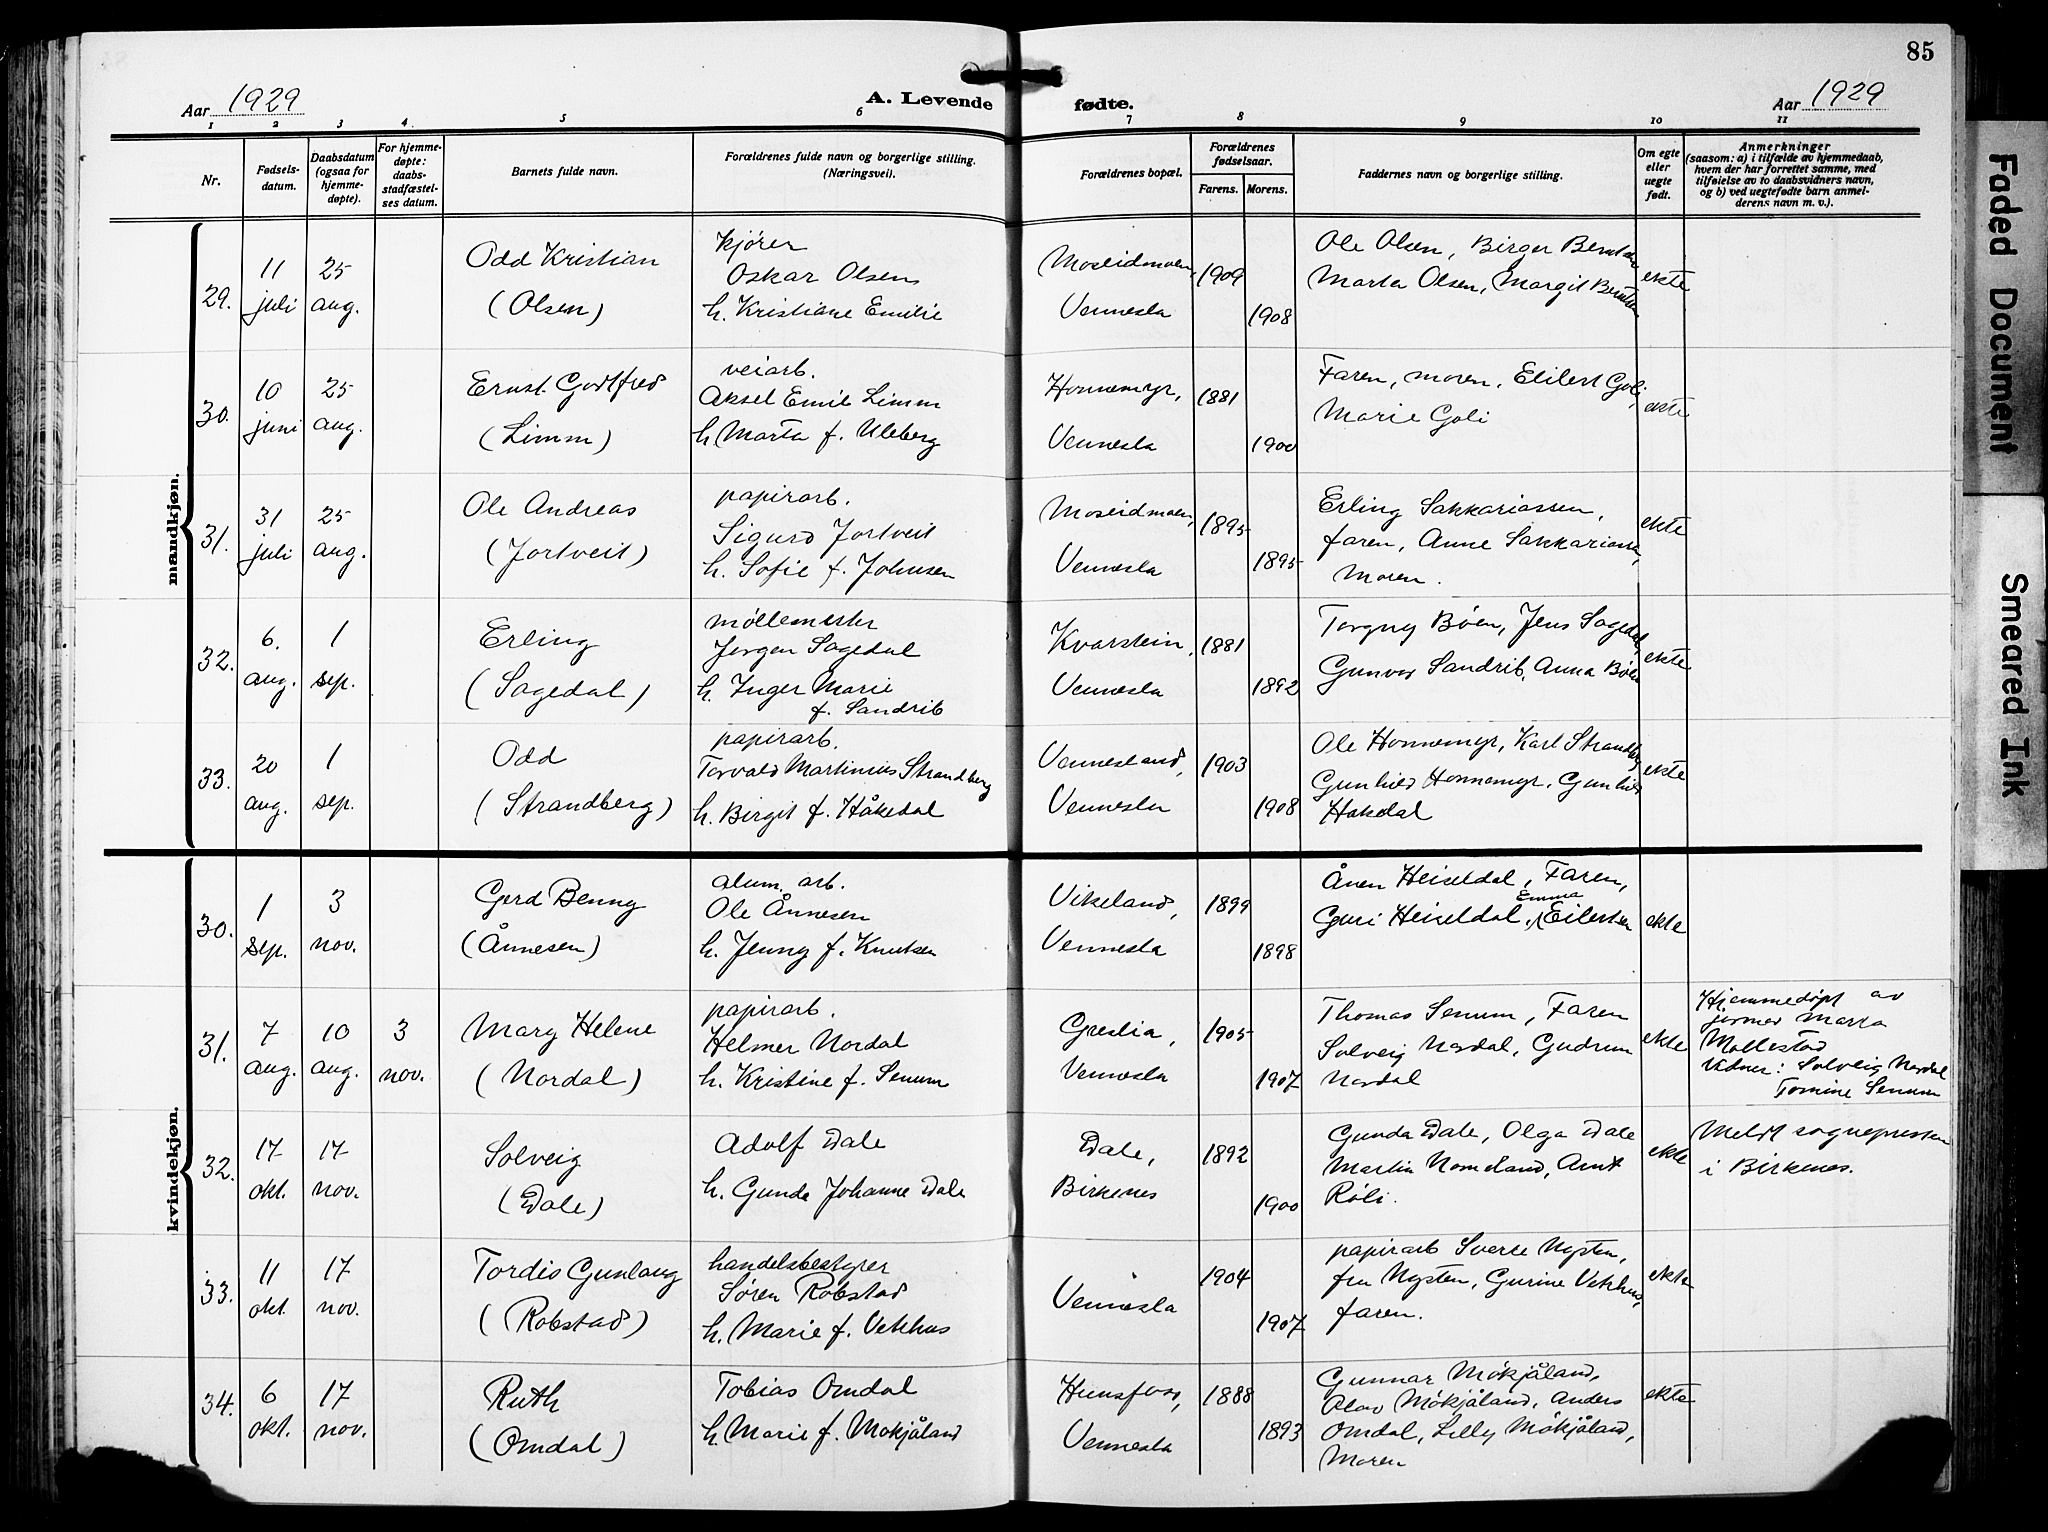 85
Aar 1929
A. Levende fødte.
Aar 1929
1 2 3 4. 5 6 7 8 9 10 11
Nr.
Fødsels-
datum.
Daabsdatum
(ogsaa for
hjemme-
døpte).
For hjemme-
døpte:
daabs-
stadfæstel-
ses datum.
Barnets fulde navn.
Forældrenes fulde navn og borgerlige stilling.
(Næringsvei).
Forældrenes bopæl.
Forældrenes
fødselsaar.
Farens. Morens.
Faddernes navn og borgerlige stilling.
Om egte
eller
uegte
født.
Anmerkninger
(saasom: a) i tilfælde av hjemmedaab,
hvem der har forrettet samme, med
tilføielse av to daabsvidners navn,
og b) ved uegtefødte barn anmel-
derens navn m. v.).
mandkjøn.
29.
11
juli
25
aug.
Odd Kristian
(Olsen)
kjører
Oskar Olsen
h. Kristiane Emilie
Moseidmoen,
Vennesla
1909
1908
Ole Olsen, Birger Berntsen
Marta Olsen, Margit Berntsen
ekte
30.
10
juni
25
aug.
Ernst Godtfred
(Limm)
veiarb.
Aksel Emil Limm
h. Marta f. Uleberg
Honnemyr,
Vennesla
1881
1900
Faren, moren, Eilert Goli,
Marie Goli
ekte
31.
31
juli
25
aug.
Ole Andreas
(Jortveit)
papirarb.
Sigurd Jortveit
h. Sofie f. Johnsen
Moseidmoen,
Vennesla
1895
1895
Erling Sakkariassen,
faren, Anne Sakkariassen,
Moren.
ekte
32.
6.
aug.
1
sep.
Erling
(Sagedal)
møllemester
Jørgen Sagedal
h. Inger Marie
f. Sandrib
Kvarstein,
Vennesla
1881
1892
Torgny Bøen, Jens Sagedal,
Gunvor Sandrib, Anna Bøen
ekte
33.
20
aug.
1
sep.
Odd
(Strandberg)
papirarb.
Torvald Martinius Strandberg
h. Birgit f. Håkedal
Vennesland,
Vennesla
1903
1908
Ole Honnemyr, Karl Strandberg
Gunhild Honnemyr, Gunhild
Hakedal
ekte
kvindekjøn.
30.
1
sep.
3
nov.
Gerd Benny
(Ånnesen)
alum. arb.
Ole Ånnesen
h. Jenny f. Knutsen
Vikeland,
Vennesla
1899
1898
Ånen Heiseldal, Faren,
Emma
Guri Heiseldal, Eilertsen
ekte
31.
7
aug.
10
aug.
3
nov.
Mary Helene
(Nordal)
papirarb.
Helmer Nordal
h. Kristine f. Senum
Greslia,
Vennesla
1905
1907
Thomas Senum, Faren
Solveig Nordal, Gudrun
Nordal
ekte
Hjemmedøpt av
jormor Marta
Mollestad
Vidner: Solveig Nordal
Tomine Senum
32.
17
okt.
17
nov.
Solveig
(Dale)
Adolf Dale
h. Gunda Johanne Dale
Dale,
Birkenes
1892
1900
Gunda Dale, Olga Dale
Martin Nomeland, Arnt
Røli.
ekte
Meldt sognepresten
i Birkenes.
33.
11
okt.
17
nov.
Tordis Gunlaug
(Robstad)
handelsbestyrer
Søren Robstad
h. Marie f. Vehhus
Vennesla
1904
1907
papirarb Sverre Nysten,
fru Nysten, Gurine Vehhus,
faren.
ekte
34.
6
okt.
17
nov.
Ruth
(Omdal)
Tobias Omdal
h. Marie f. Mokjåland
Hunsfoss,
Vennesla
1888
1893
Gunnar Mokjåland,
Olav Mokjåland, Anders
Omdal, Lelly Mokjåland,
Moren
ekte
Faded Document
Smeared Ink